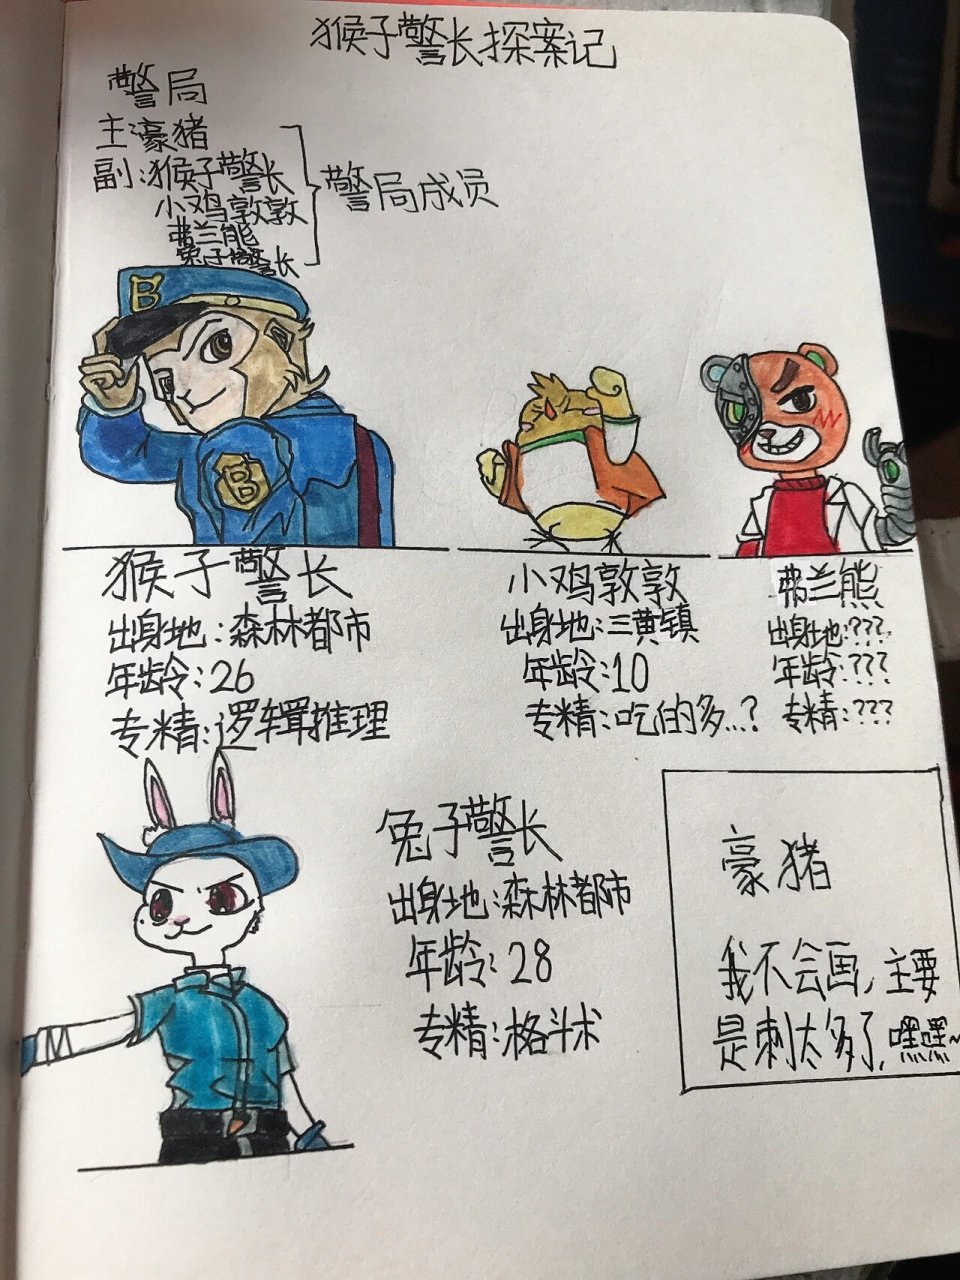 猴子警长探案记
警局
主:豪猪
副:猴子警长
小鸡敦敦
弗兰熊
兔子警长
警局成员
B
B
猴子警长
出身地:森林都市
年龄:26
专精:逻辑推理
小鸡敦敦
出身地:三黄镇
年龄:10
专精:吃的多...?
弗兰熊
出身地:???
年龄:???
专精:???
兔子警长
出身地:森林都市
年龄:28
专精:格斗术
豪猪
我不会画,主要
是刺太多了,嘿嘿~